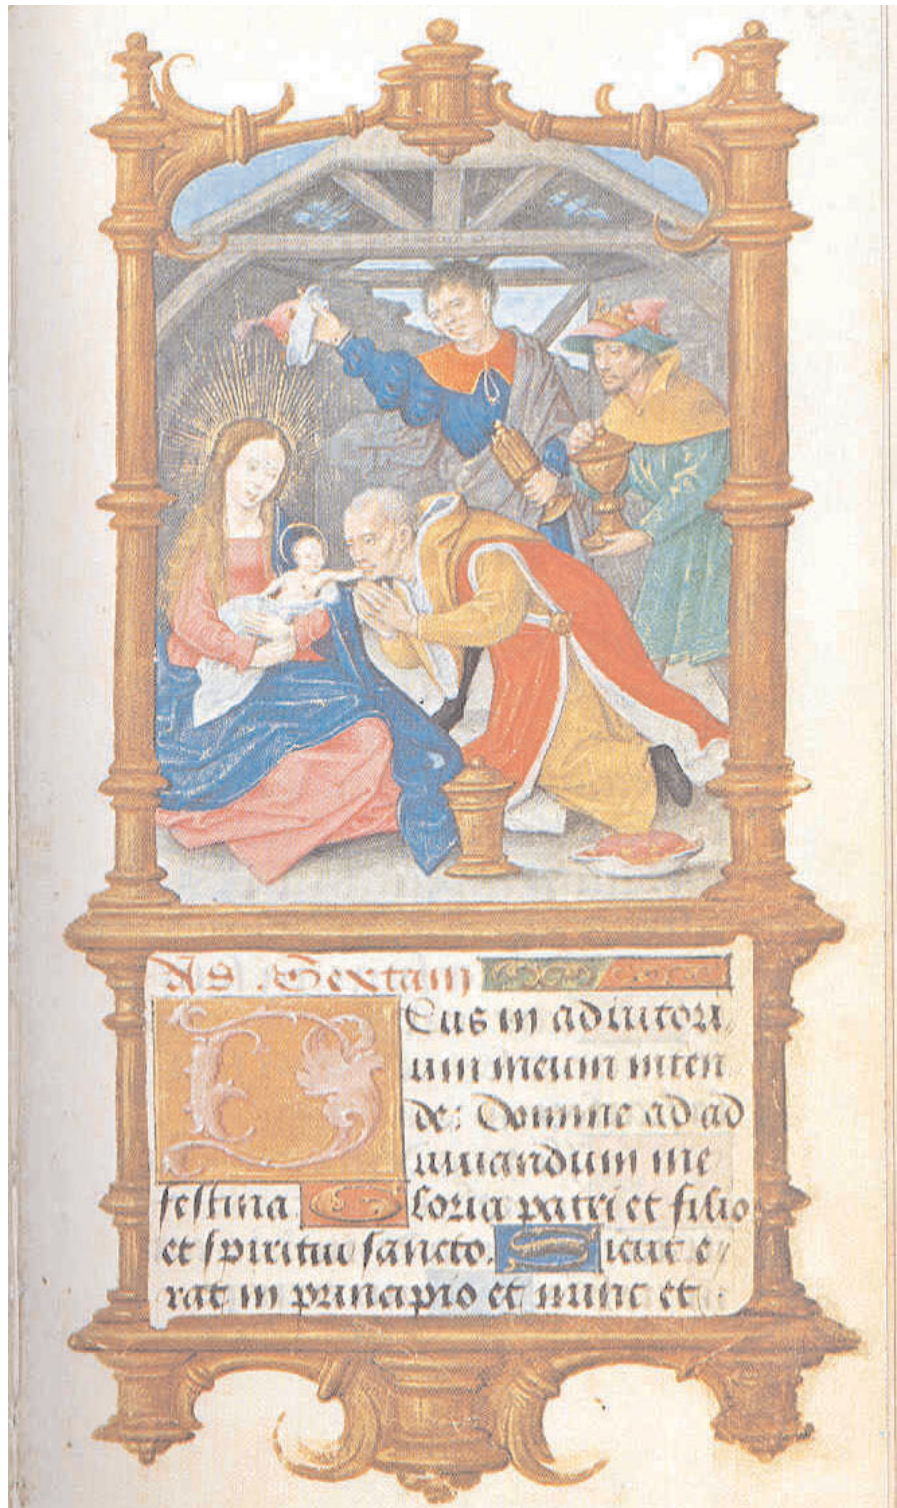 Ad Sextam
Deus in adiutori
um meum inten
de: Domine ad ad
iuuandum me
festina Gloria patri et filio
et spiritui sancto. Sicut e/
rat in principio et nunc et